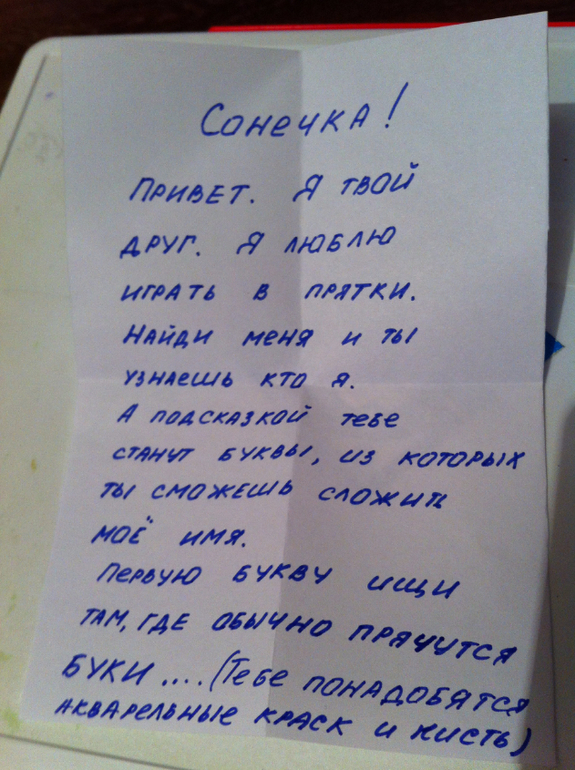 Сонечка!
Привет. Я твой
друг. Я люблю
играть в прятки.
Найди меня и ты
узнаешь кто я.
А подсказкой тебе
станут буквы, из которых
ты сможешь сложить
моё имя.
Первую букву ищи
там, где обычно прячутся
буки....(Тебе понадобятся
акварельные краск и кисть)